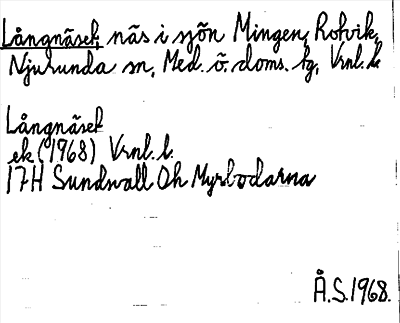 Långnäset, näs i sjön Mingen, Rotvik,
Njurunda sn, Med. ö. doms. tg, Vrnl. l.
Långnäset
ek (1968) Vrnl. l.
17H Sundsvall Oh Myrbodarna
Å.S. 1968.